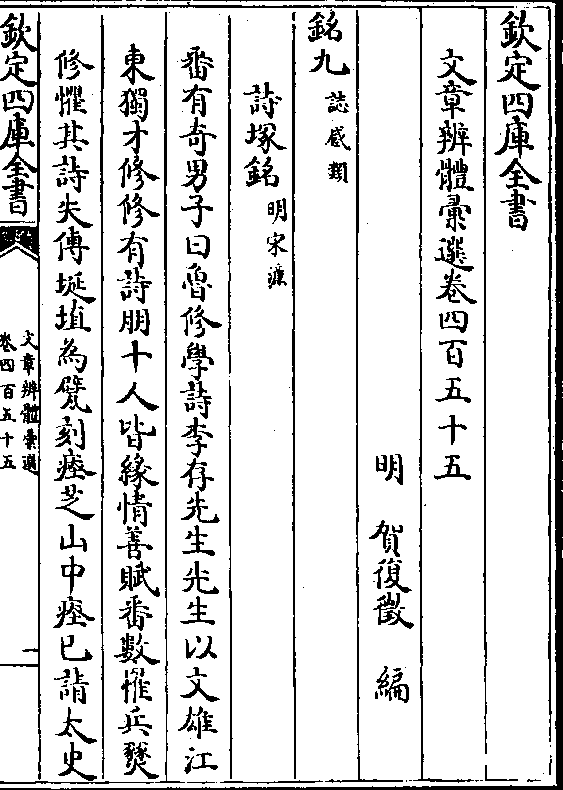 欽定四庫全書
文章辨體彚選卷四百五十五
明 賀復徵 編
銘九 誌感類
詩塚銘 明宋濂
番有奇男子曰魯修學詩李存先生先生以文雄江
東獨才修修有詩朋十人皆緣情善賦番數罹兵燹
修懼其詩失傳埏埴為甓刻瘞芝山中瘞已請太史
欽定四庫全書
文章辨體彚選
卷四百五十五
一